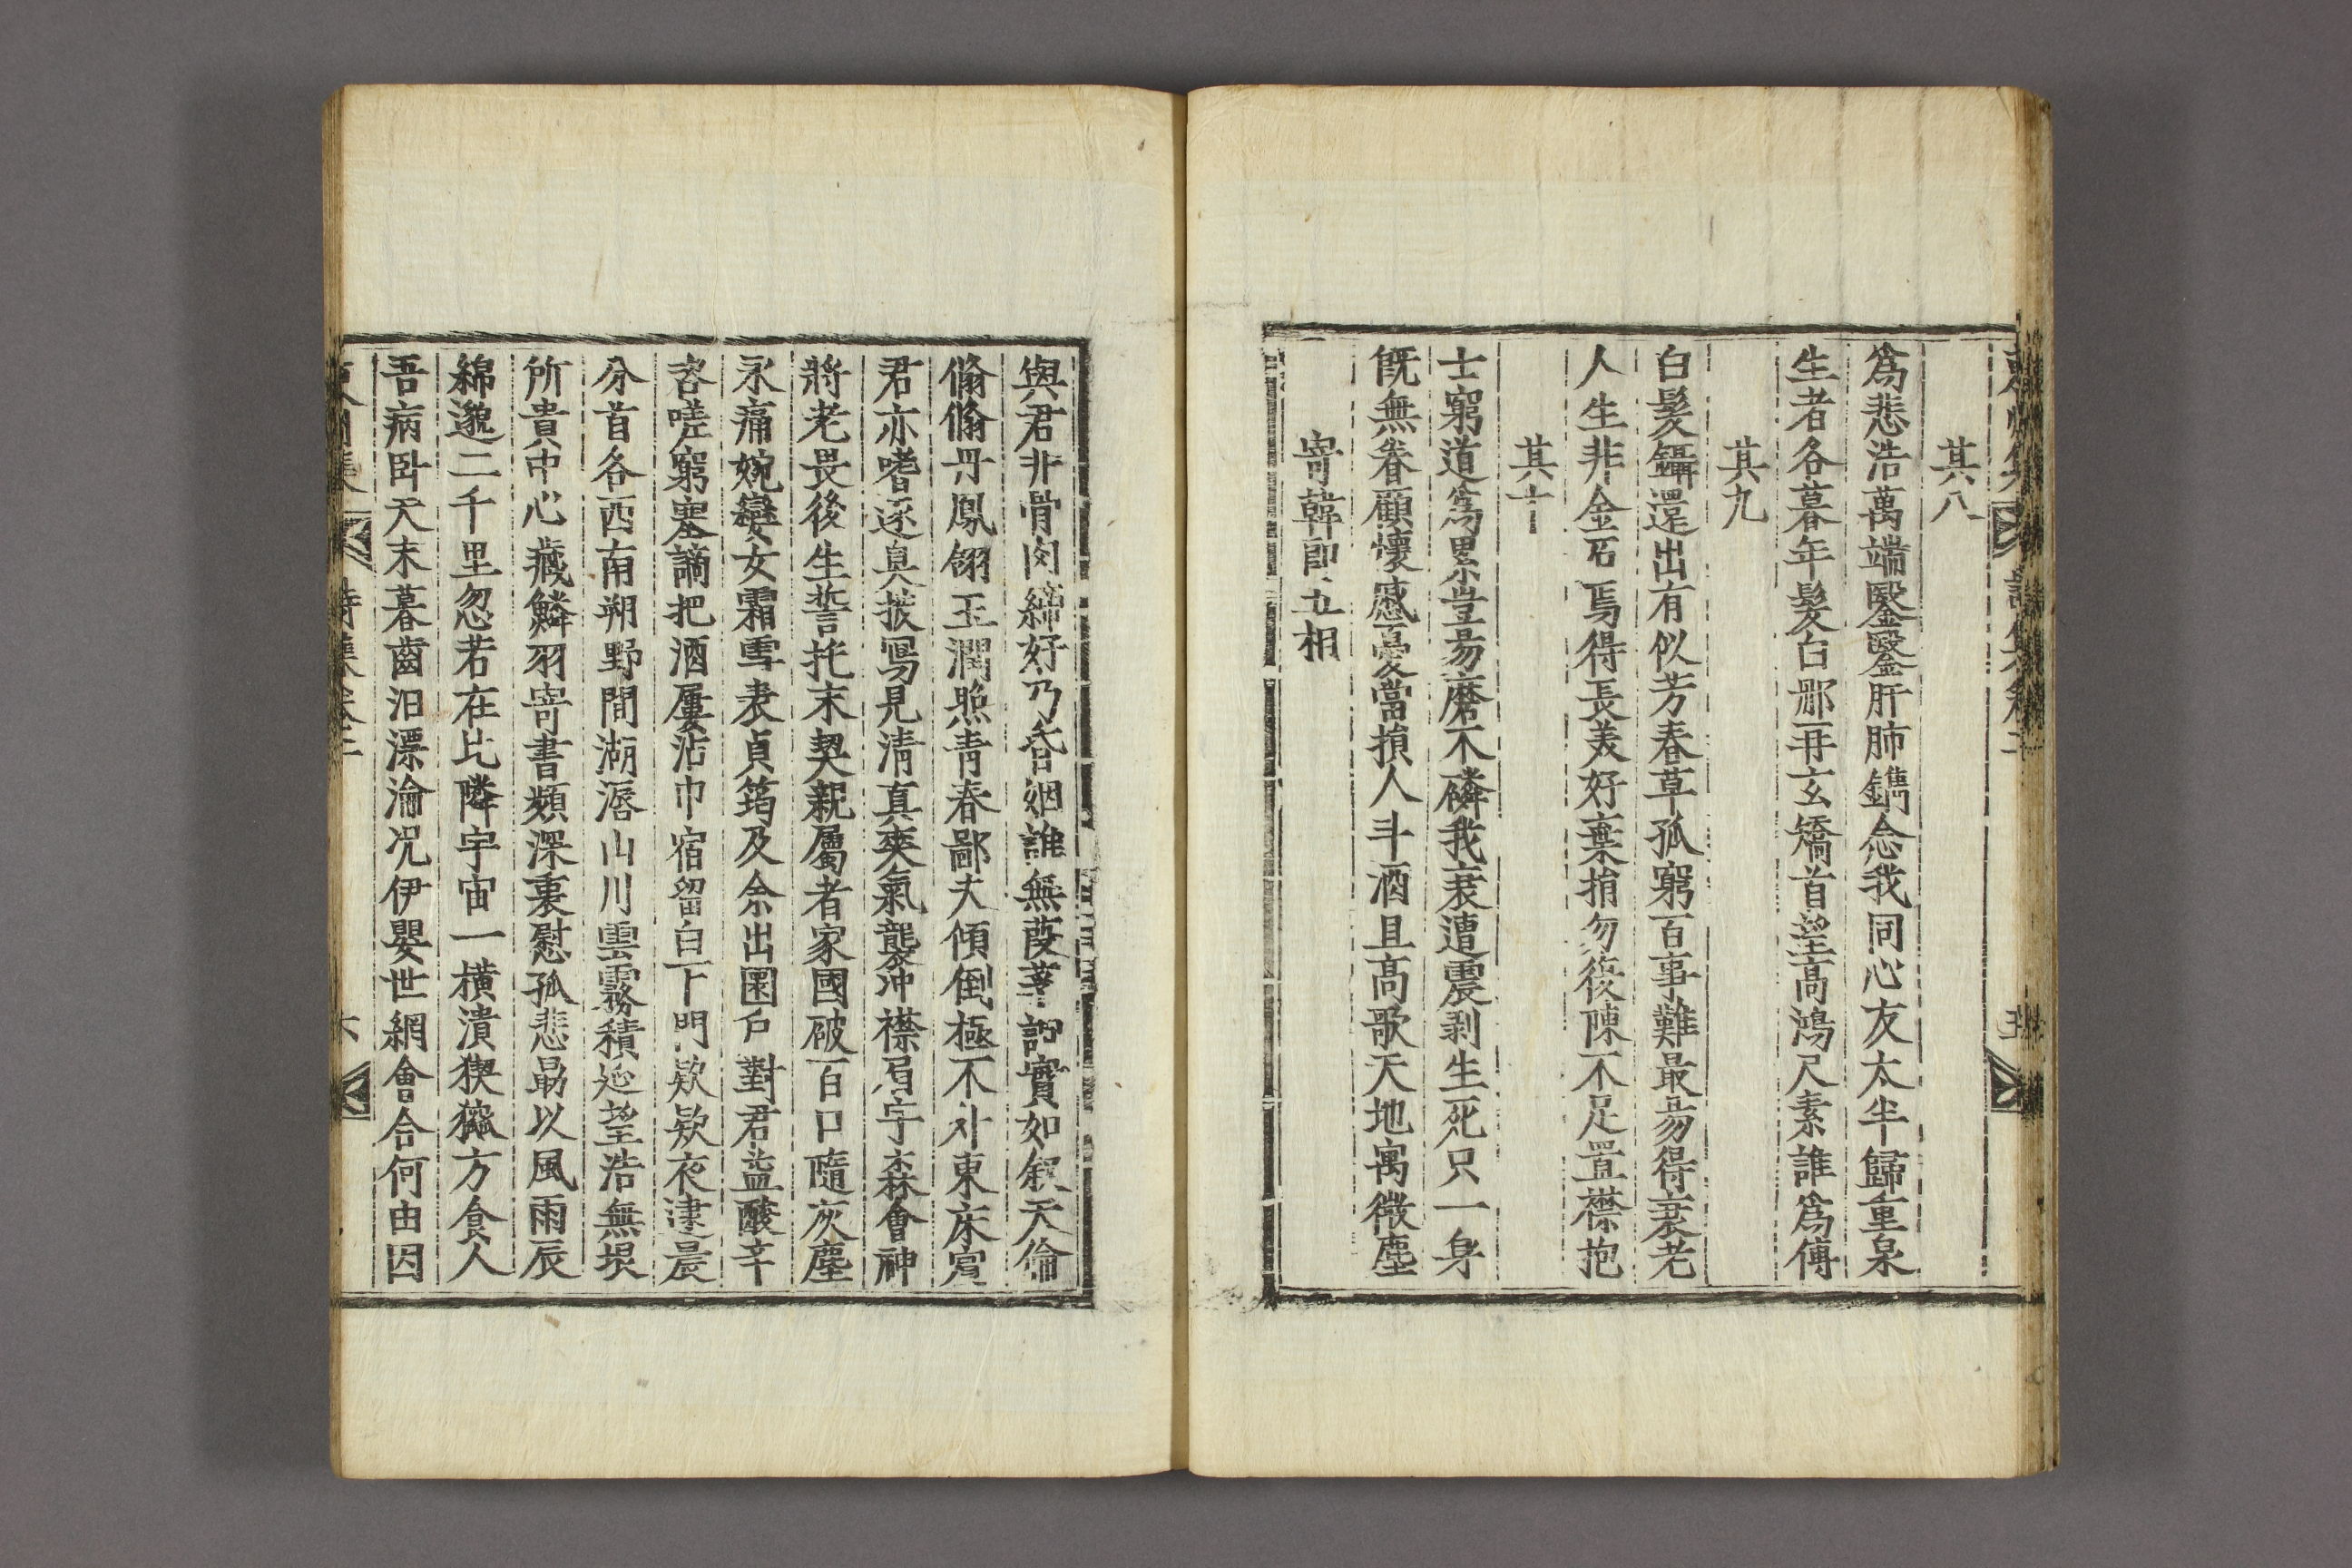 其八
爲悲浩萬端鑿鑿肝肺鐫念我同心友太半歸重泉
生者各暮年髮白那再玄矯首望高鴻尺素誰爲傳
其九
白髮鑷還出有似芳春草孤窮百事難最易得衰老
人生非金石焉得長美好棄捐勿復陳不足置襟抱
其十
士窮道爲累豈易磨不磷我衰遭震剥生死只一身
旣無眷顧懷慼憂當損人斗酒且高歌天地寓微塵
寄韓郎五相
與君非骨肉締好乃昏姻誰無葭莩 實如叙天倫
翛翛丹鳳翎玉潤照靑春鄙夫傾倒極不外東床賓
君亦嗜逐臭披寫見淸真爽氣襲沖襟眉宇森會神
將老畏後生誓托末契親屬者家國破百口隨灰塵
永痛婉孌女霜雪表貞筠及余出圉戶對君益酸辛
咨嗟窮塞謫把酒屢沾巾宿留白下門欵欵夜逮晨
分首各西南朔野間湖漘山川雲霧積延望浩無垠
所貴中心藏鱗羽寄書頻深裏慰孤悲勗以風雨辰
綿邈二千里忽若在比隣宇宙一橫潰猰㺄方食人
吾病卧天末暮齒汨漂淪况伊嬰世網會合何由因